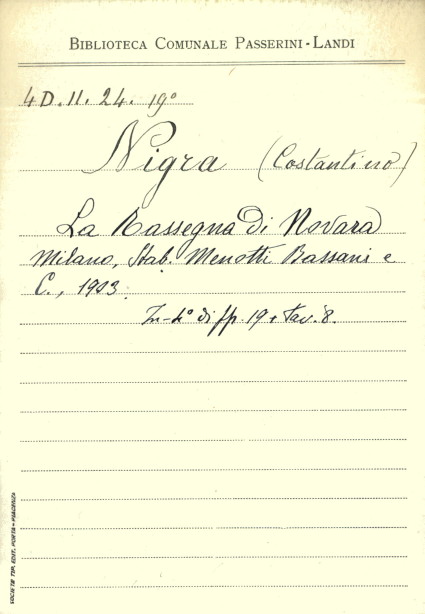 BIBLIOTECA COMUNALE PASSERINI-LANDI
4 D. II. 24. 19°
Nigra (Costantino)
La Rassegna di Novara
Milano, Stab. Menotti Bassani e
C., 1903.
In-4° di pp. 19 + tav. 8.
SOCIETÀ TIP. EDIT. PORTA - PIACENZA